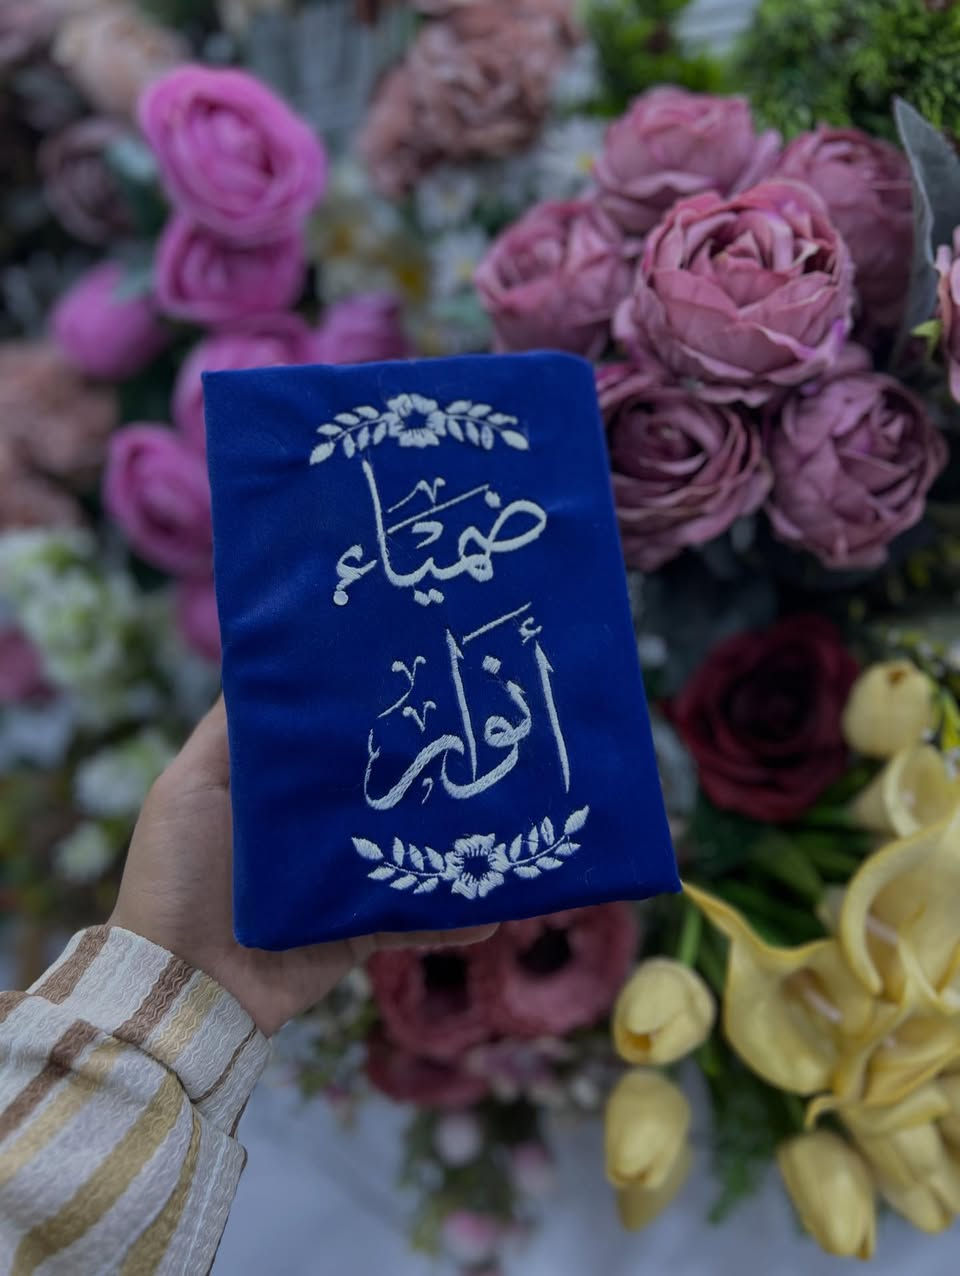 ضمياء
أنوار